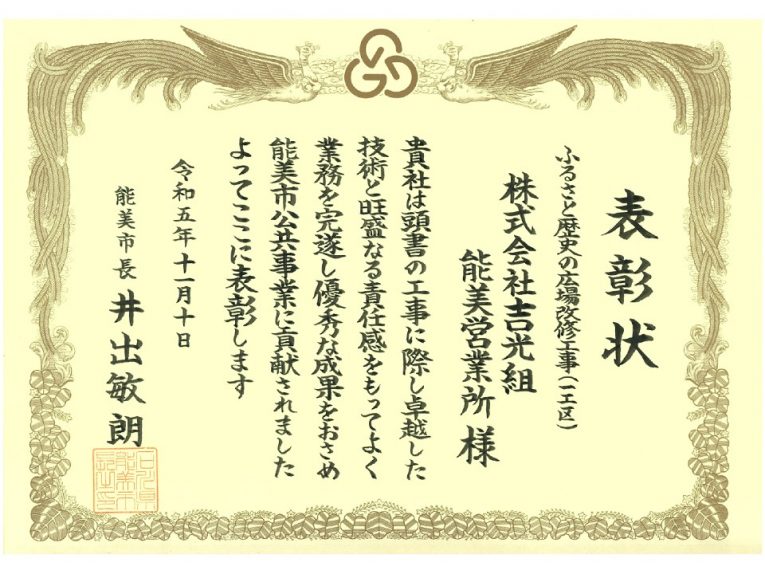 表彰状
ふるさと歴史の広場改修工事(一工区)
株式会社吉光組
能美営業所 様
貴社は頭書の工事に際し卓越した
技術と旺盛なる責任感をもってよく
業務を完遂し優秀な成果をおさめ
能美市公共事業に貢献されました
よってここに表彰します
令和五年十一月十日
能美市長 井出敏朗